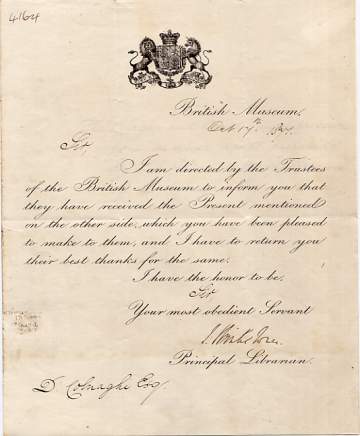 4164
British Museum,
Oct 17th 18
Sir
I am directed by the Trustees
of the British Museum to inform you that
they have received the Present mentioned
on the other side, which you have been pleased
to make to them, and I have to return you
their best thanks for the same.
I have the honor to be,
Sir
Your most obedient Servant
J. Winter Jones
Principal Librarian.
D. Colnaghi Esq.